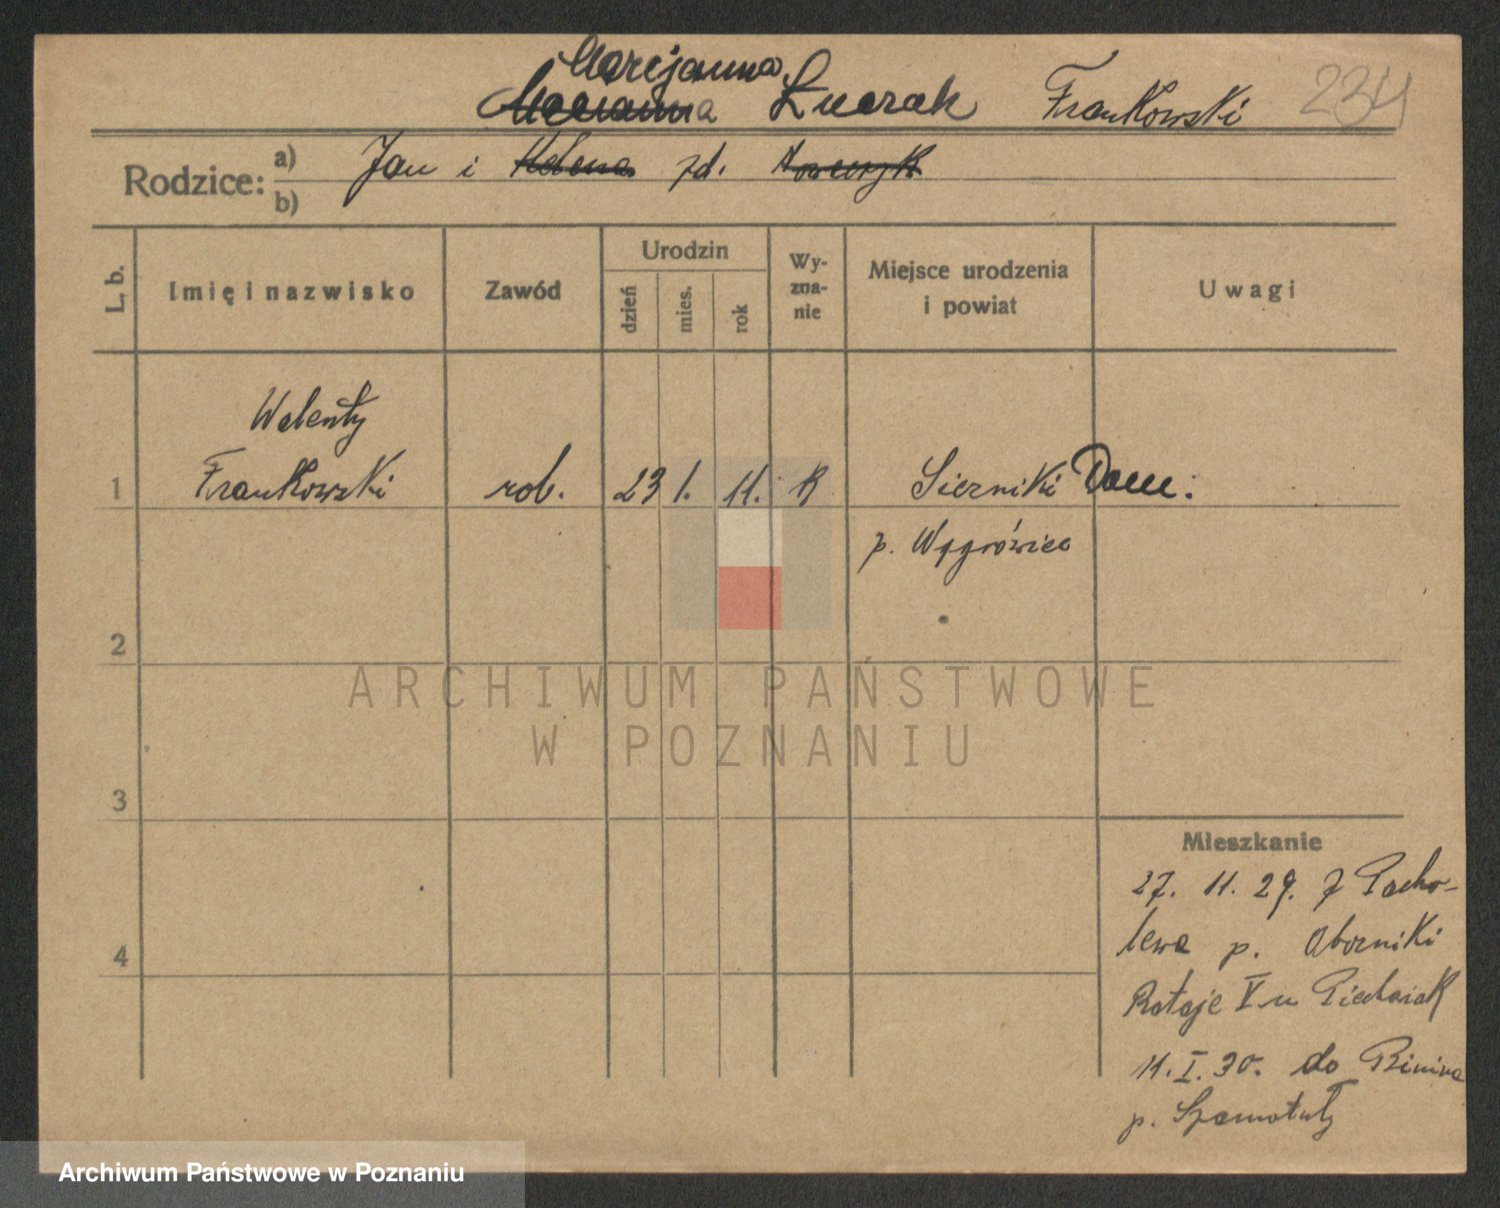 Marijanna
Marianna Łuczak Frankowski 234
Rodzice: a) Jan i Helena zd.
b)
L. b. Imię i nazwisko Zawód Urodzin dzień mies. rok Wy-zna-nie Miejsce urodzenia i powiat Uwagi
Walenty
1 Frankowski rob. 23 1. 11. K Sierniki Dom.
p. Wągrówiec
2
ARCHIWUM PAŃSTWOWE
W POZNANIU
3
Mieszkanie
27. 11. 29. z Pacho-
4 lewa p. Oborniki
Rataje V u Piechniak
11. I. 30. do
p. Szamotuły
Archiwum Państwowe w Poznaniu